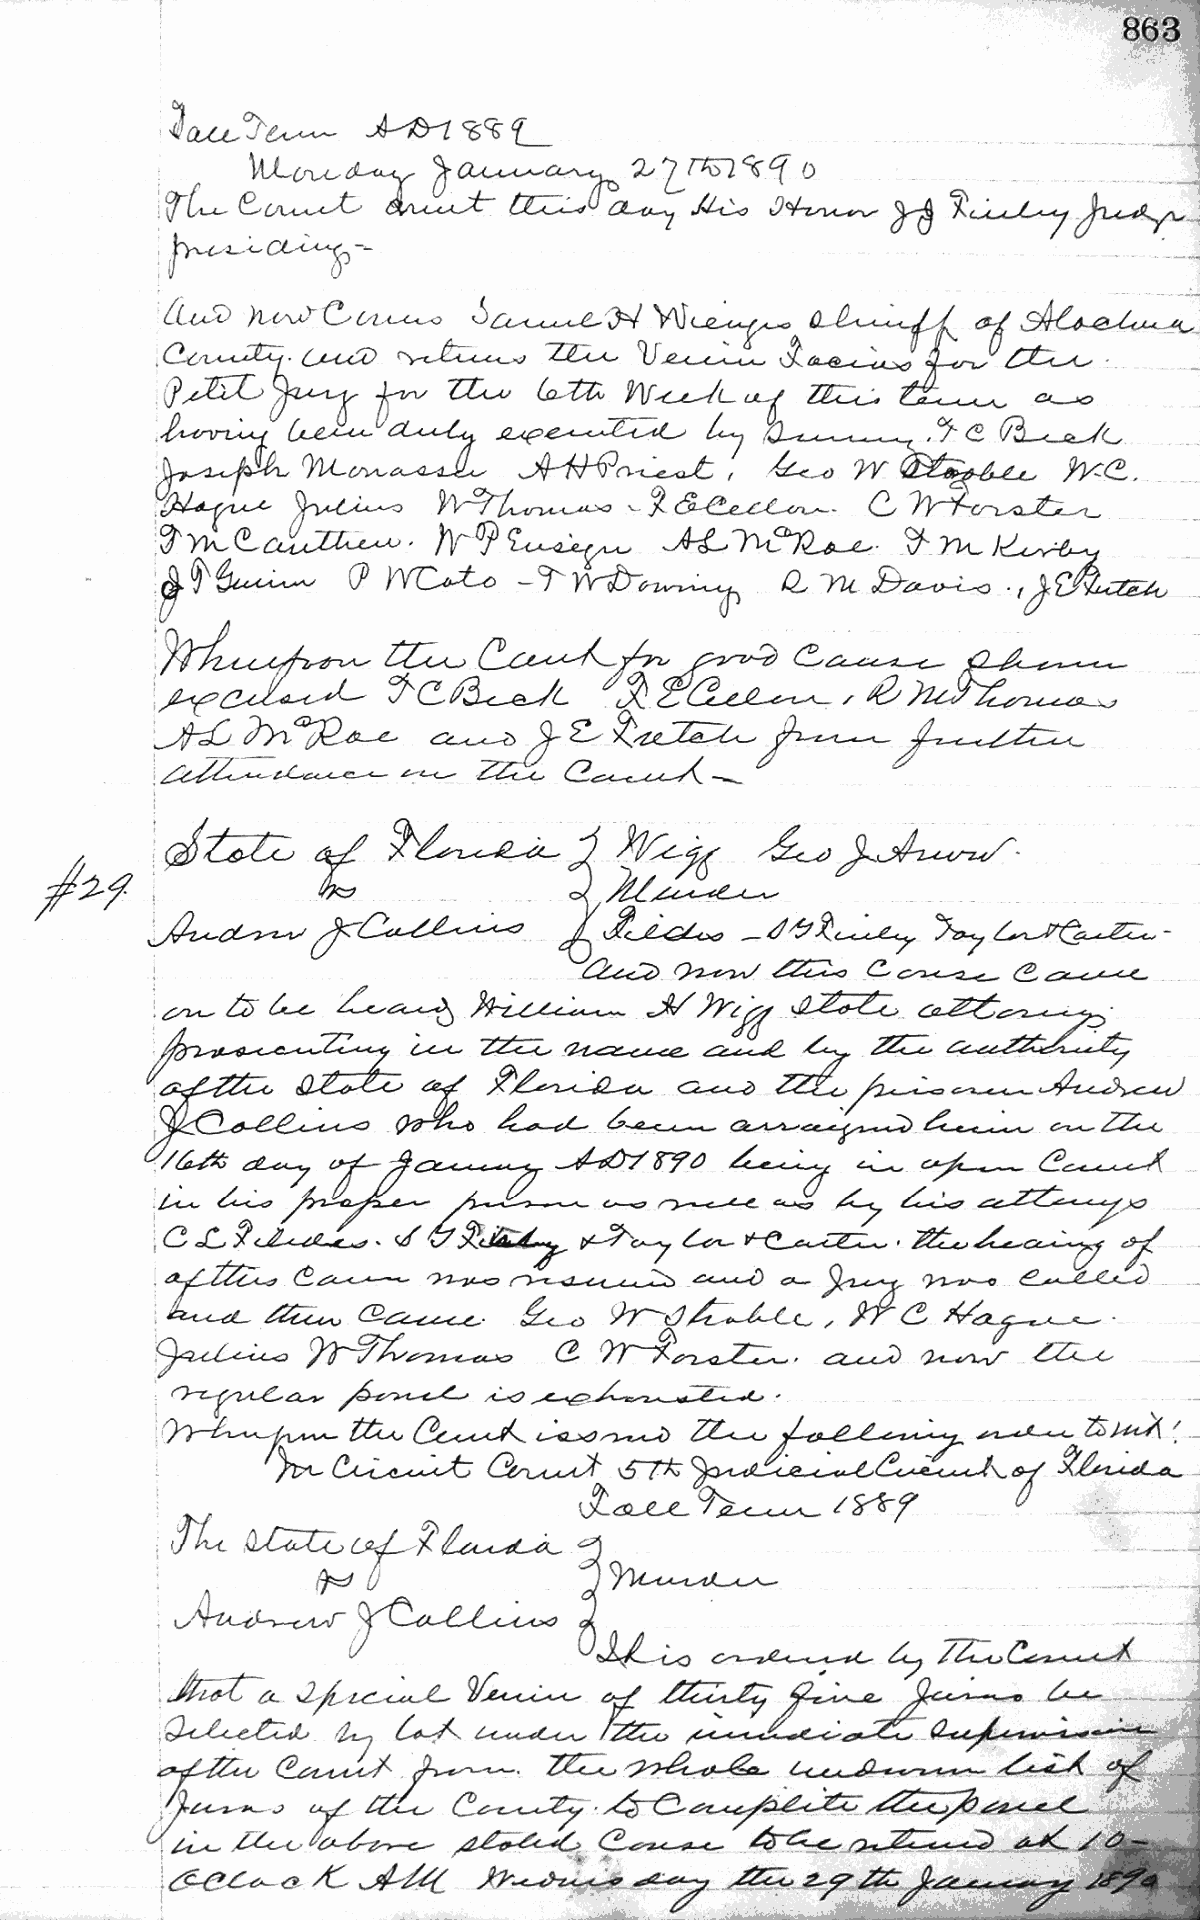 863
Fall Term AD 1889
Monday January 27th 1890
The Court met this day His Honor J J Finley Judge
presiding -
And now Comes Samuel H Wienges Sheriff of Alachua
County and returns the Venire Facias for the
Petit Jury for the 6th Week of this term as
having been duly executed by summ. T C Beck
Joseph Monasse A H Priest, Geo W Stroble W.C.
Hague Julius W Thomas - F E Cellon. C W Forster
T M Cauthen. W P Ensign A L McRae. T M Kirby
J T Guinn P W Cato - T W Downing R M Davis., J E Futch
Whereupon the Court for good Cause shown
excused T C Beck F E Cellon, R M Thomas
A L McRae and J E Futch from further
attendance on the Court -
State of Florida } Wigg Geo J Arrow.
#29. vs } Murder
Andrew J Collins } Fildes - S Y Finley Taylor & Carter -
And now this Cause Came
on to be heard William H Wigg State attorney
prosecuting in the name and by the authority
of the State of Florida and the prisoner Andrew
J Collins who had been arraigned herein on the
16th day of January AD 1890 being in open Court
in his proper person as well as by his attenys
C L Fildes. S Y Finley & Taylor & Carter. the hearing of
of this Cause was resumed and a Jury was called
and then Came. Geo W Stroble, W C Hague.
Julius W Thomas C W Forster. and now the
regular panel is exhausted.
Whereupon the Court issued the following order to wit:
In Circuit Court 5th Judicial Circuit of Florida
Fall Term 1889
The State of Florida }
vs } Murder
Andrew J Collins }
It is ordered by The Court
that a Special Venire of thirty five Jurors be
Selected by lot under the immediate Supervision
of the Court from. the whole undrawn list of
Jurors of the County. to Complete the panel
in the above stated Cause to be returned at 10 -
OClock AM Wednesday the 29th January 1890